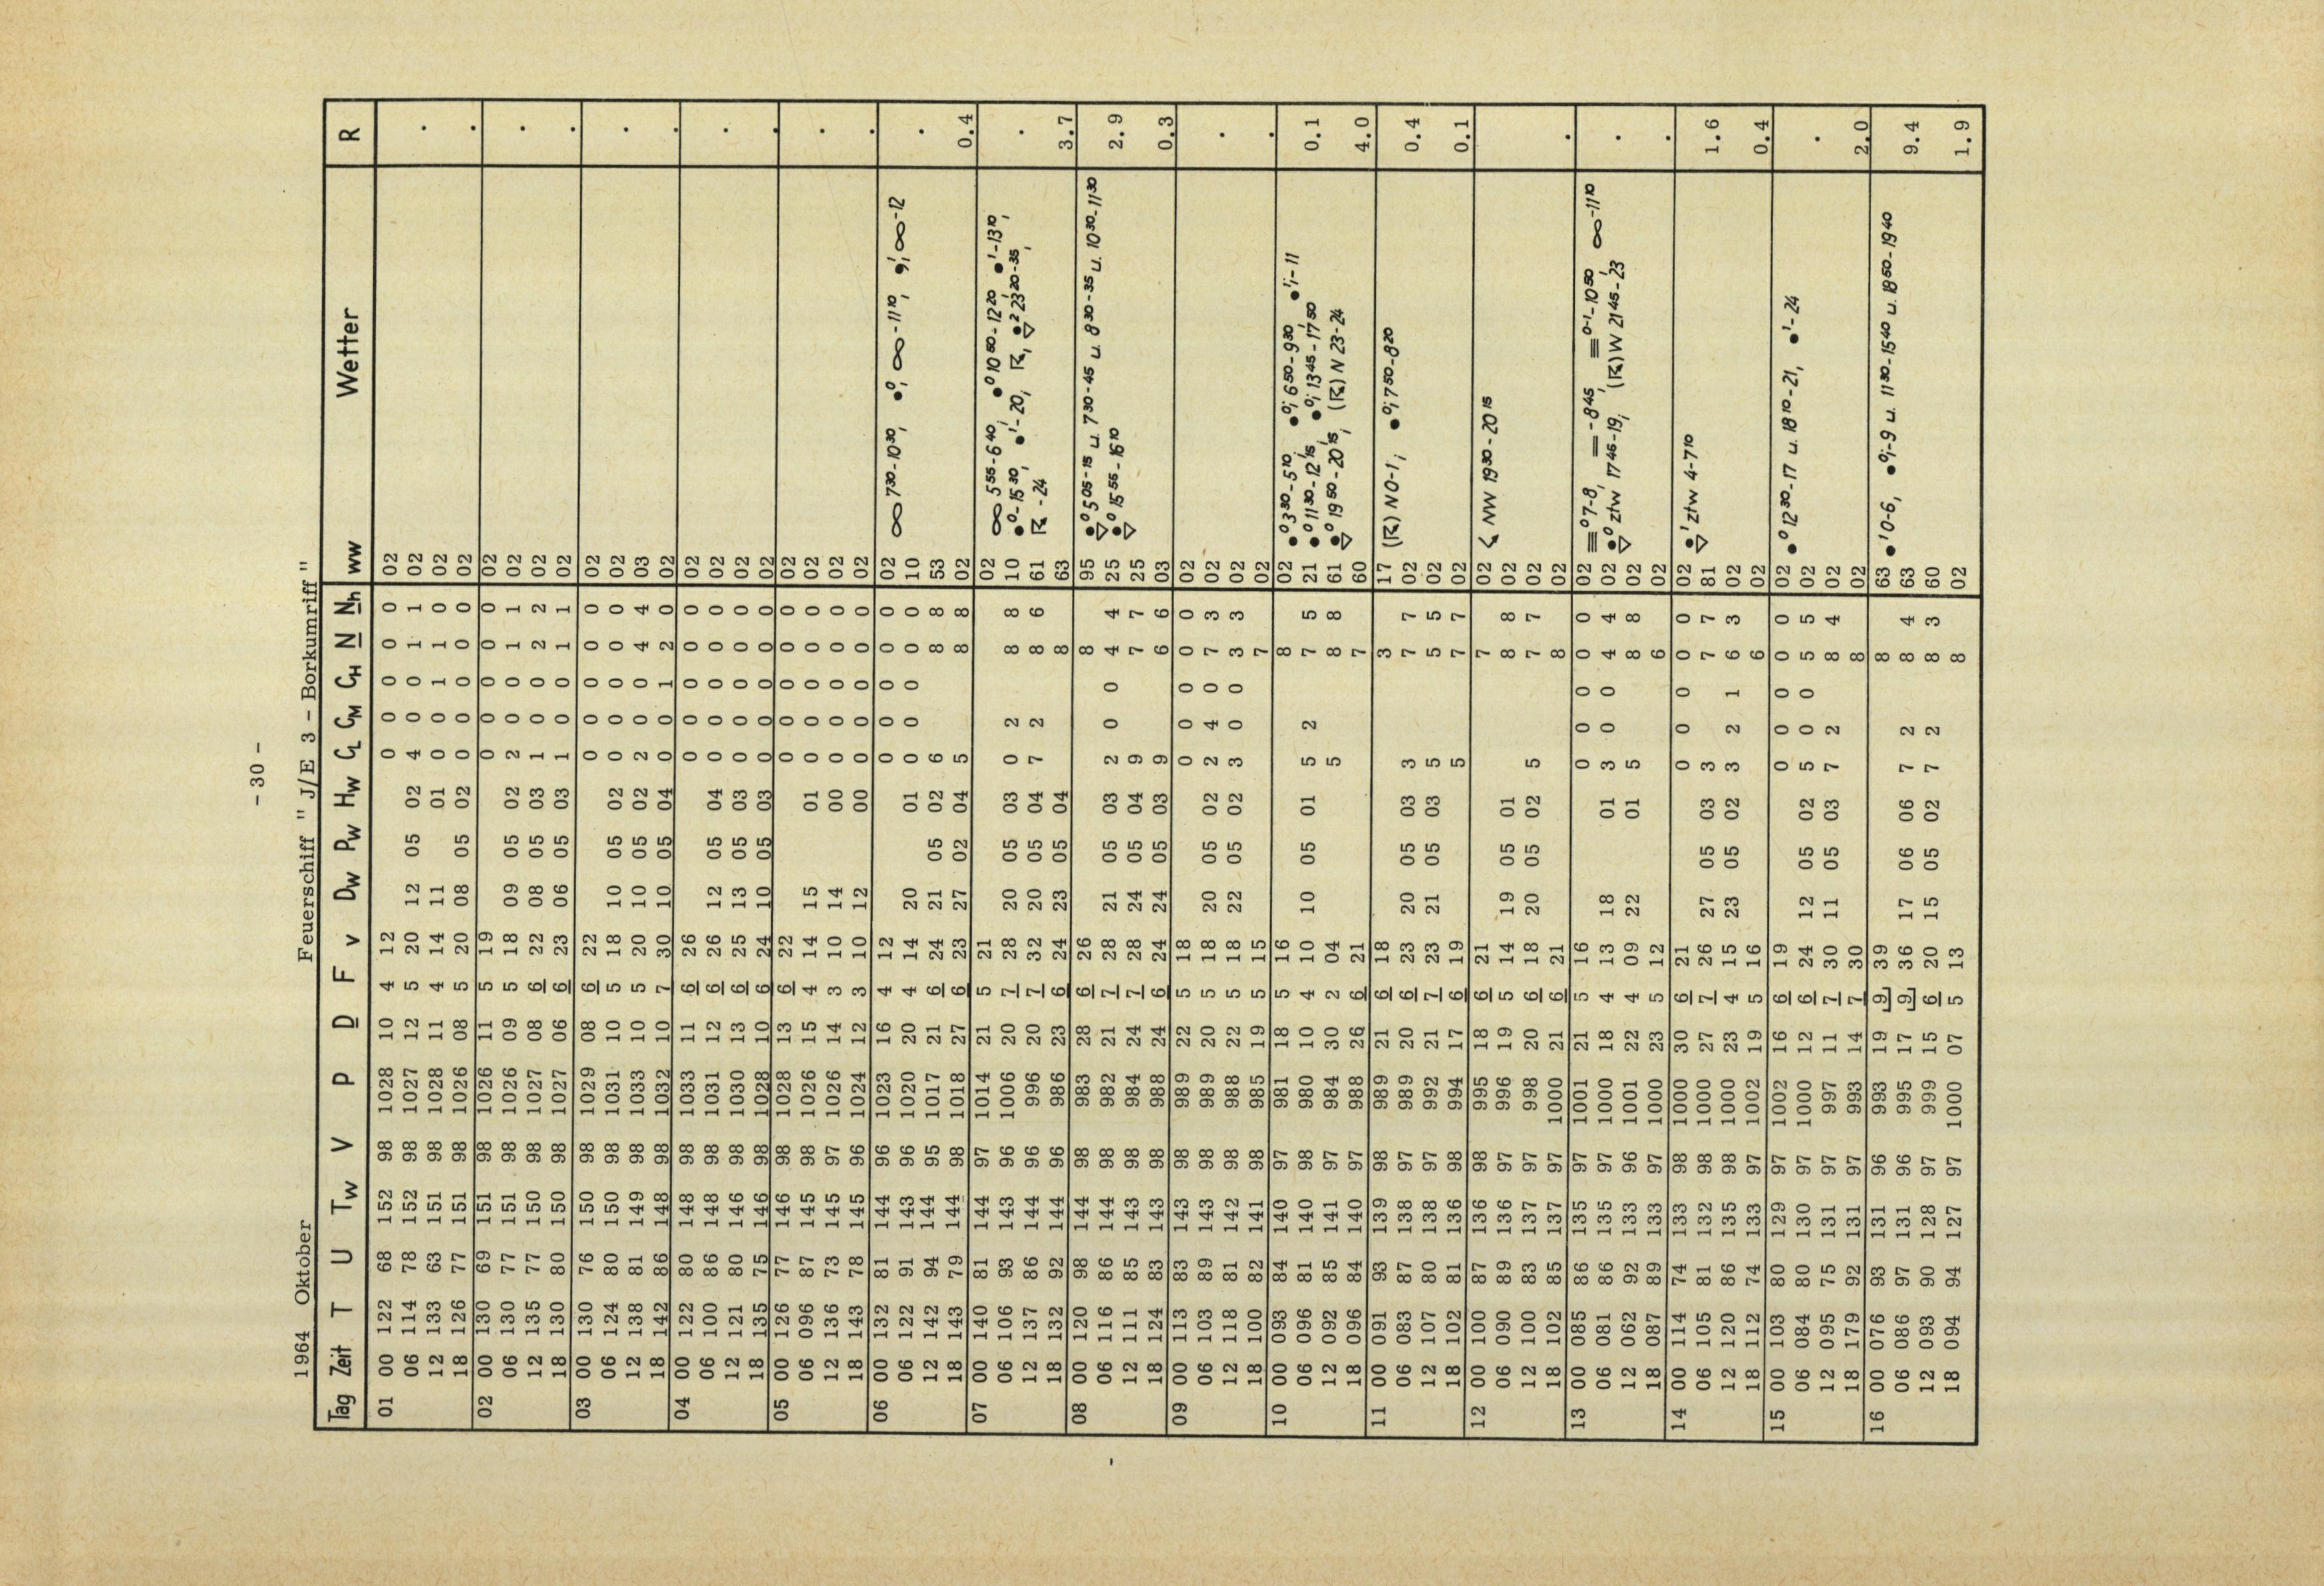 - 30 -
1964 Oktober Feuerschiff " J/E 3 - Borkumriff "
Tag Zeit T U Tw V P D F v Dw Pw Hw CL CM CH N Nh ww Wetter R
01 00 122 68 152 98 1028 10 4 12 0 0 0 0 0 02
06 114 78 152 98 1027 12 5 20 12 05 02 4 0 0 1 1 02 .
12 133 63 151 98 1028 11 4 14 11 01 0 0 1 1 0 02
18 126 77 151 98 1026 08 5 20 08 05 02 0 0 0 0 0 02 .
02 00 130 69 151 98 1026 11 5 19 0 0 0 0 0 02
06 130 77 151 98 1026 09 5 18 09 05 02 2 0 0 1 1 02 .
12 135 77 150 98 1027 08 6 22 08 05 03 1 0 0 2 2 02
18 130 80 150 98 1027 06 6 23 06 05 03 1 0 0 1 1 02 .
03 00 130 76 150 98 1029 08 6 22 0 0 0 0 0 02
06 124 80 150 98 1031 10 5 18 10 05 02 0 0 0 0 0 02 .
12 138 81 149 98 1033 10 5 20 10 05 02 2 0 0 4 4 03
18 142 86 148 98 1032 10 7 30 10 05 04 0 0 1 2 0 02 .
04 00 122 80 148 98 1033 11 6 26 0 0 0 0 0 02
06 100 86 148 98 1031 12 6 26 12 05 04 0 0 0 0 0 02 .
12 121 80 146 98 1030 13 6 25 13 05 03 0 0 0 0 0 02
18 135 75 146 98 1028 10 6 24 10 05 03 0 0 0 0 0 02 .
05 00 126 77 146 98 1028 13 6 22 0 0 0 0 0 02
06 096 87 145 98 1026 15 4 14 15 01 0 0 0 0 0 02 .
12 136 73 145 97 1026 14 3 10 14 00 0 0 0 0 0 02
18 143 78 145 96 1024 12 3 10 12 00 0 0 0 0 0 02 .
06 00 132 81 144 96 1023 16 4 12 0 0 0 0 0 02 ∞ 7³⁰-10³⁰, ●⁰, ∞-11¹⁰, ∞-12
06 122 91 143 96 1020 20 4 14 20 01 0 0 0 0 0 10 .
12 142 94 144 95 1017 21 6 24 21 05 02 6 8 8 53
18 143 79 144 98 1018 27 6 23 27 02 04 5 8 8 02 0.4
07 00 140 81 144 97 1014 21 5 21 02 ∞ 5⁵⁵-6⁴⁰, ●⁰ 10⁵⁰-12²⁰ ●¹-13¹⁰,
06 106 93 143 96 1006 20 7 28 20 05 03 0 2 8 8 10 ●⁰-15³⁰, ●¹-20, ☈, ●² 23²⁰-35, .
12 137 86 144 96 996 20 7 32 20 05 04 7 2 8 6 61 ☈-24
18 132 92 144 96 986 23 6 24 23 05 04 8 63 3.7
08 00 120 98 144 98 983 28 6 26 8 95 ●⁰ 5⁰⁵-15 u. 7³⁰-45 u. 8³⁰-35 u. 10³⁰-11³⁰
06 116 86 144 98 982 21 7 28 21 05 03 2 0 0 4 4 25 ●⁰ 15⁵⁵-16¹⁰ 2.9
12 111 85 143 98 984 24 7 28 24 05 04 9 7 7 25
18 124 83 143 98 988 24 6 24 24 05 03 9 6 6 03 0.3
09 00 113 83 143 98 989 22 5 18 0 0 0 0 0 02
06 103 89 143 98 989 20 5 18 20 05 02 2 4 0 7 3 02 .
12 118 81 142 98 988 22 5 18 22 05 02 3 0 0 3 3 02
18 100 82 141 98 985 19 5 15 7 02 .
10 00 093 84 140 97 981 18 5 16 8 02 ●⁰ 3³⁰-5¹⁰, ●⁰, 6⁵⁰-9³⁰ ●⁰,-11
06 096 81 140 98 980 10 4 10 10 05 01 5 2 7 5 21 ●⁰ 11³⁰-12¹⁵ ●⁰, 13⁴⁵-17⁵⁰ 0.1
12 092 85 141 97 984 30 2 04 5 8 8 61 ●⁰ 19⁵⁰-20¹⁵, (☈) N 23-24
18 096 84 140 97 988 26 6 21 7 60 4.0
11 00 091 93 139 98 989 21 6 18 3 17 (☈) N 0-1, ●⁰, 7⁵⁰-8²⁰
06 083 87 138 97 989 20 6 23 20 05 03 3 7 7 02 0.4
12 107 80 138 97 992 21 7 23 21 05 03 5 5 5 02
18 102 81 136 98 994 17 6 19 5 7 7 02 0.1
12 00 100 87 136 98 995 18 6 21 7 02 NW 19³⁰-20¹⁵
06 090 89 136 97 996 19 5 14 19 05 01 8 8 02
12 100 83 137 97 998 20 6 18 20 05 02 5 7 7 02
18 102 85 137 97 1000 21 6 21 8 02 .
13 00 085 86 135 97 1001 21 5 16 0 0 0 0 0 02 ≡⁰ 7-8, =-8⁴⁵, ≡⁰⁻¹-10⁵⁰ ∞-11¹⁰
06 081 86 135 97 1000 18 4 13 18 01 3 0 0 4 4 02 ●⁰ ztw 17⁴⁵-19, (☈) W 21⁴⁵-23 .
12 062 92 133 96 1001 22 4 09 22 01 5 8 8 02
18 087 89 133 97 1000 23 5 12 6 02 .
14 00 114 74 133 98 1000 30 6 21 0 0 0 0 0 02 ●¹ ztw 4-7¹⁰
06 105 81 132 98 1000 27 7 26 27 05 03 3 7 7 81 1.6
12 120 86 135 98 1000 23 4 15 23 05 02 3 2 1 6 3 02
18 112 74 133 97 1002 19 5 16 6 02 0.4
15 00 103 80 129 97 1002 16 6 19 0 0 0 0 0 02 ●⁰ 12³⁰-17 u. 18¹⁰-21, ●¹-24
06 084 80 130 97 1000 12 6 24 12 05 02 5 0 0 5 5 02 .
12 095 75 131 97 997 11 7 30 11 05 03 7 2 8 4 02
18 179 92 131 97 993 14 7 30 8 02 2.0
16 00 076 93 131 96 993 19 9] 39 8 63 ●¹ 0-6, ●⁰,-9 u. 11³⁰-15⁴⁰ u. 18⁵⁰-19⁴⁰
06 086 97 131 96 995 17 9] 36 17 06 06 7 2 8 4 63 9.4
12 093 90 128 97 999 15 6 20 15 05 02 7 2 8 3 60
18 094 94 127 97 1000 07 5 13 8 02 1.9